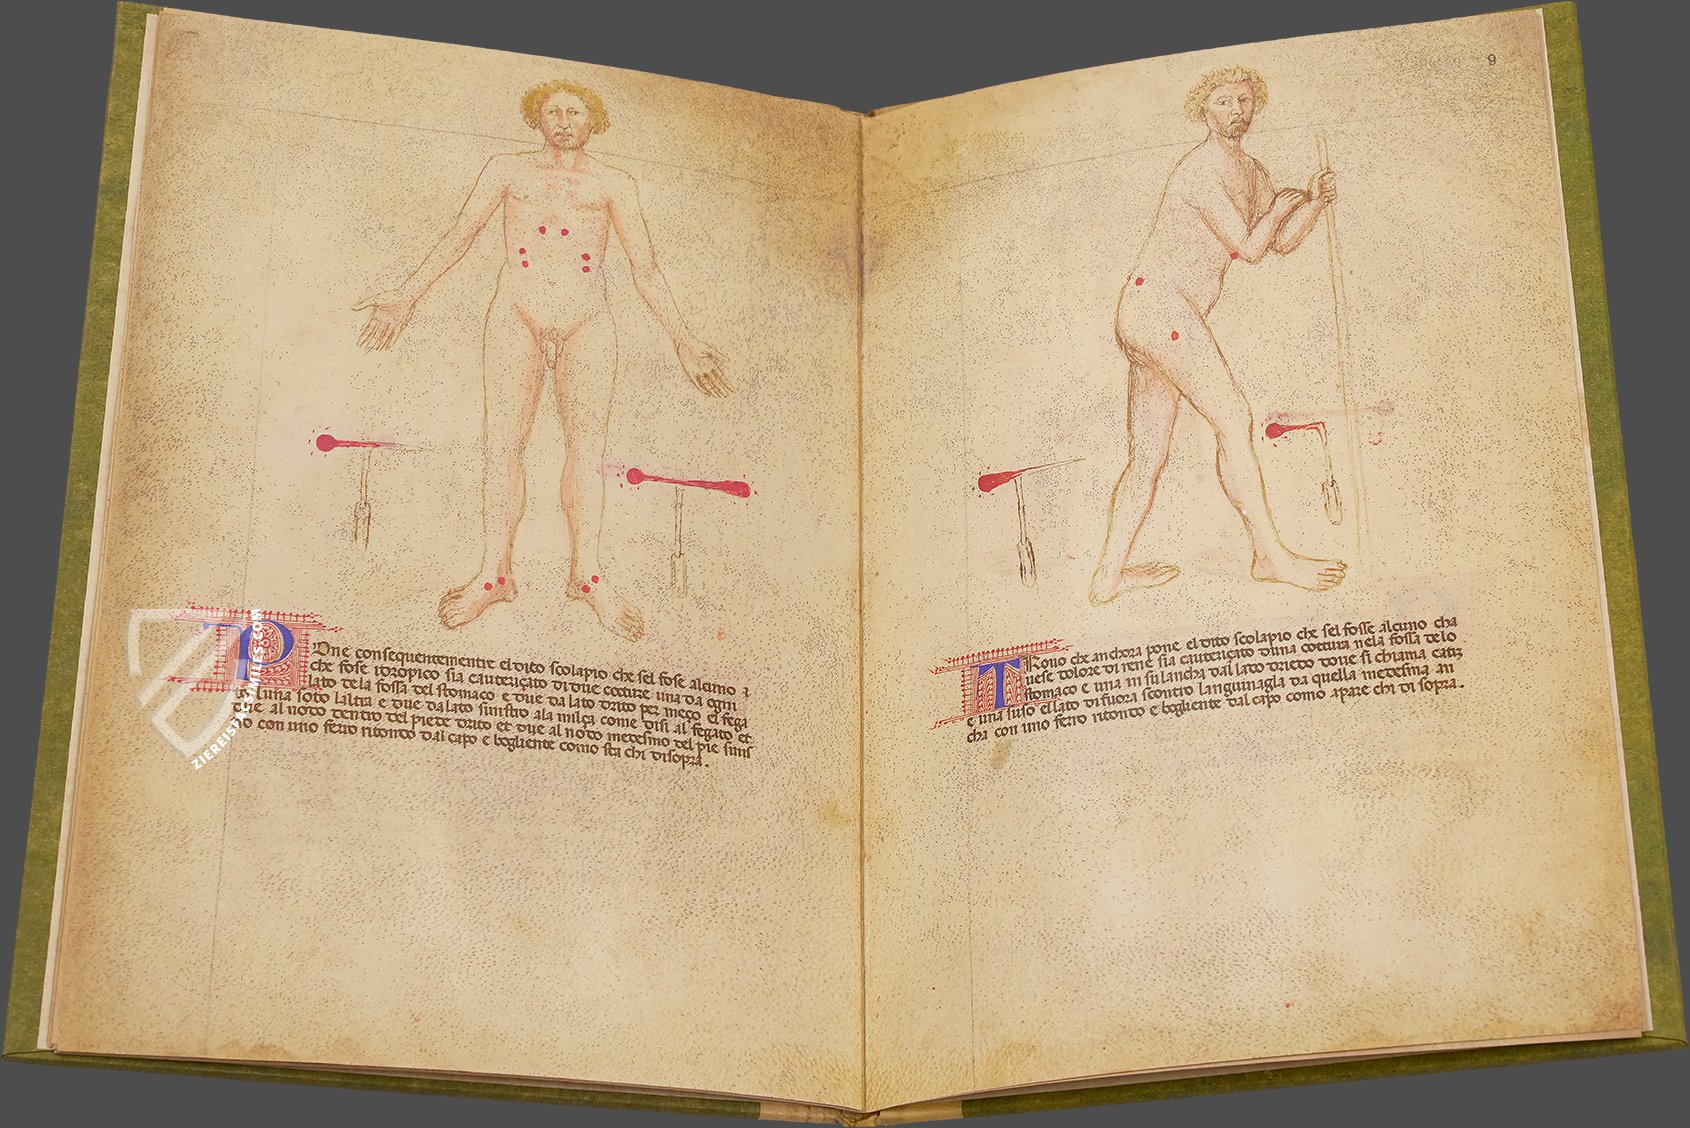 POne consequentemente el dito scolapio che sel fose alcuno a
che fose idropico sia cauteriçato di due cocture una da ogni
lato de la fossa del stomaco e due da lato drito per meço el fega
luna soto laltra e due da lato sinistro ala milça come disi al fegato et
due al nodo dentro del piede drito et due al nodo medesmo del pie sinis
con uno ferro ritondo dal capo e bogliente como sta chi disopra.
ZIEREIS
.COM
9
TRouo che anchora pone el dito scolapio che sel fosse alcuno cha
uese dolore di rene sia cauteriçato duna coctura nela fossa de lo
stomaco e una in su lancha dal lato drieto doue si chiama catiz
e una suso el lato di fuora scontro languinagla da quella medesima an
cha con uno ferro ritondo e bogliente dal capo como apare chi di sopra.